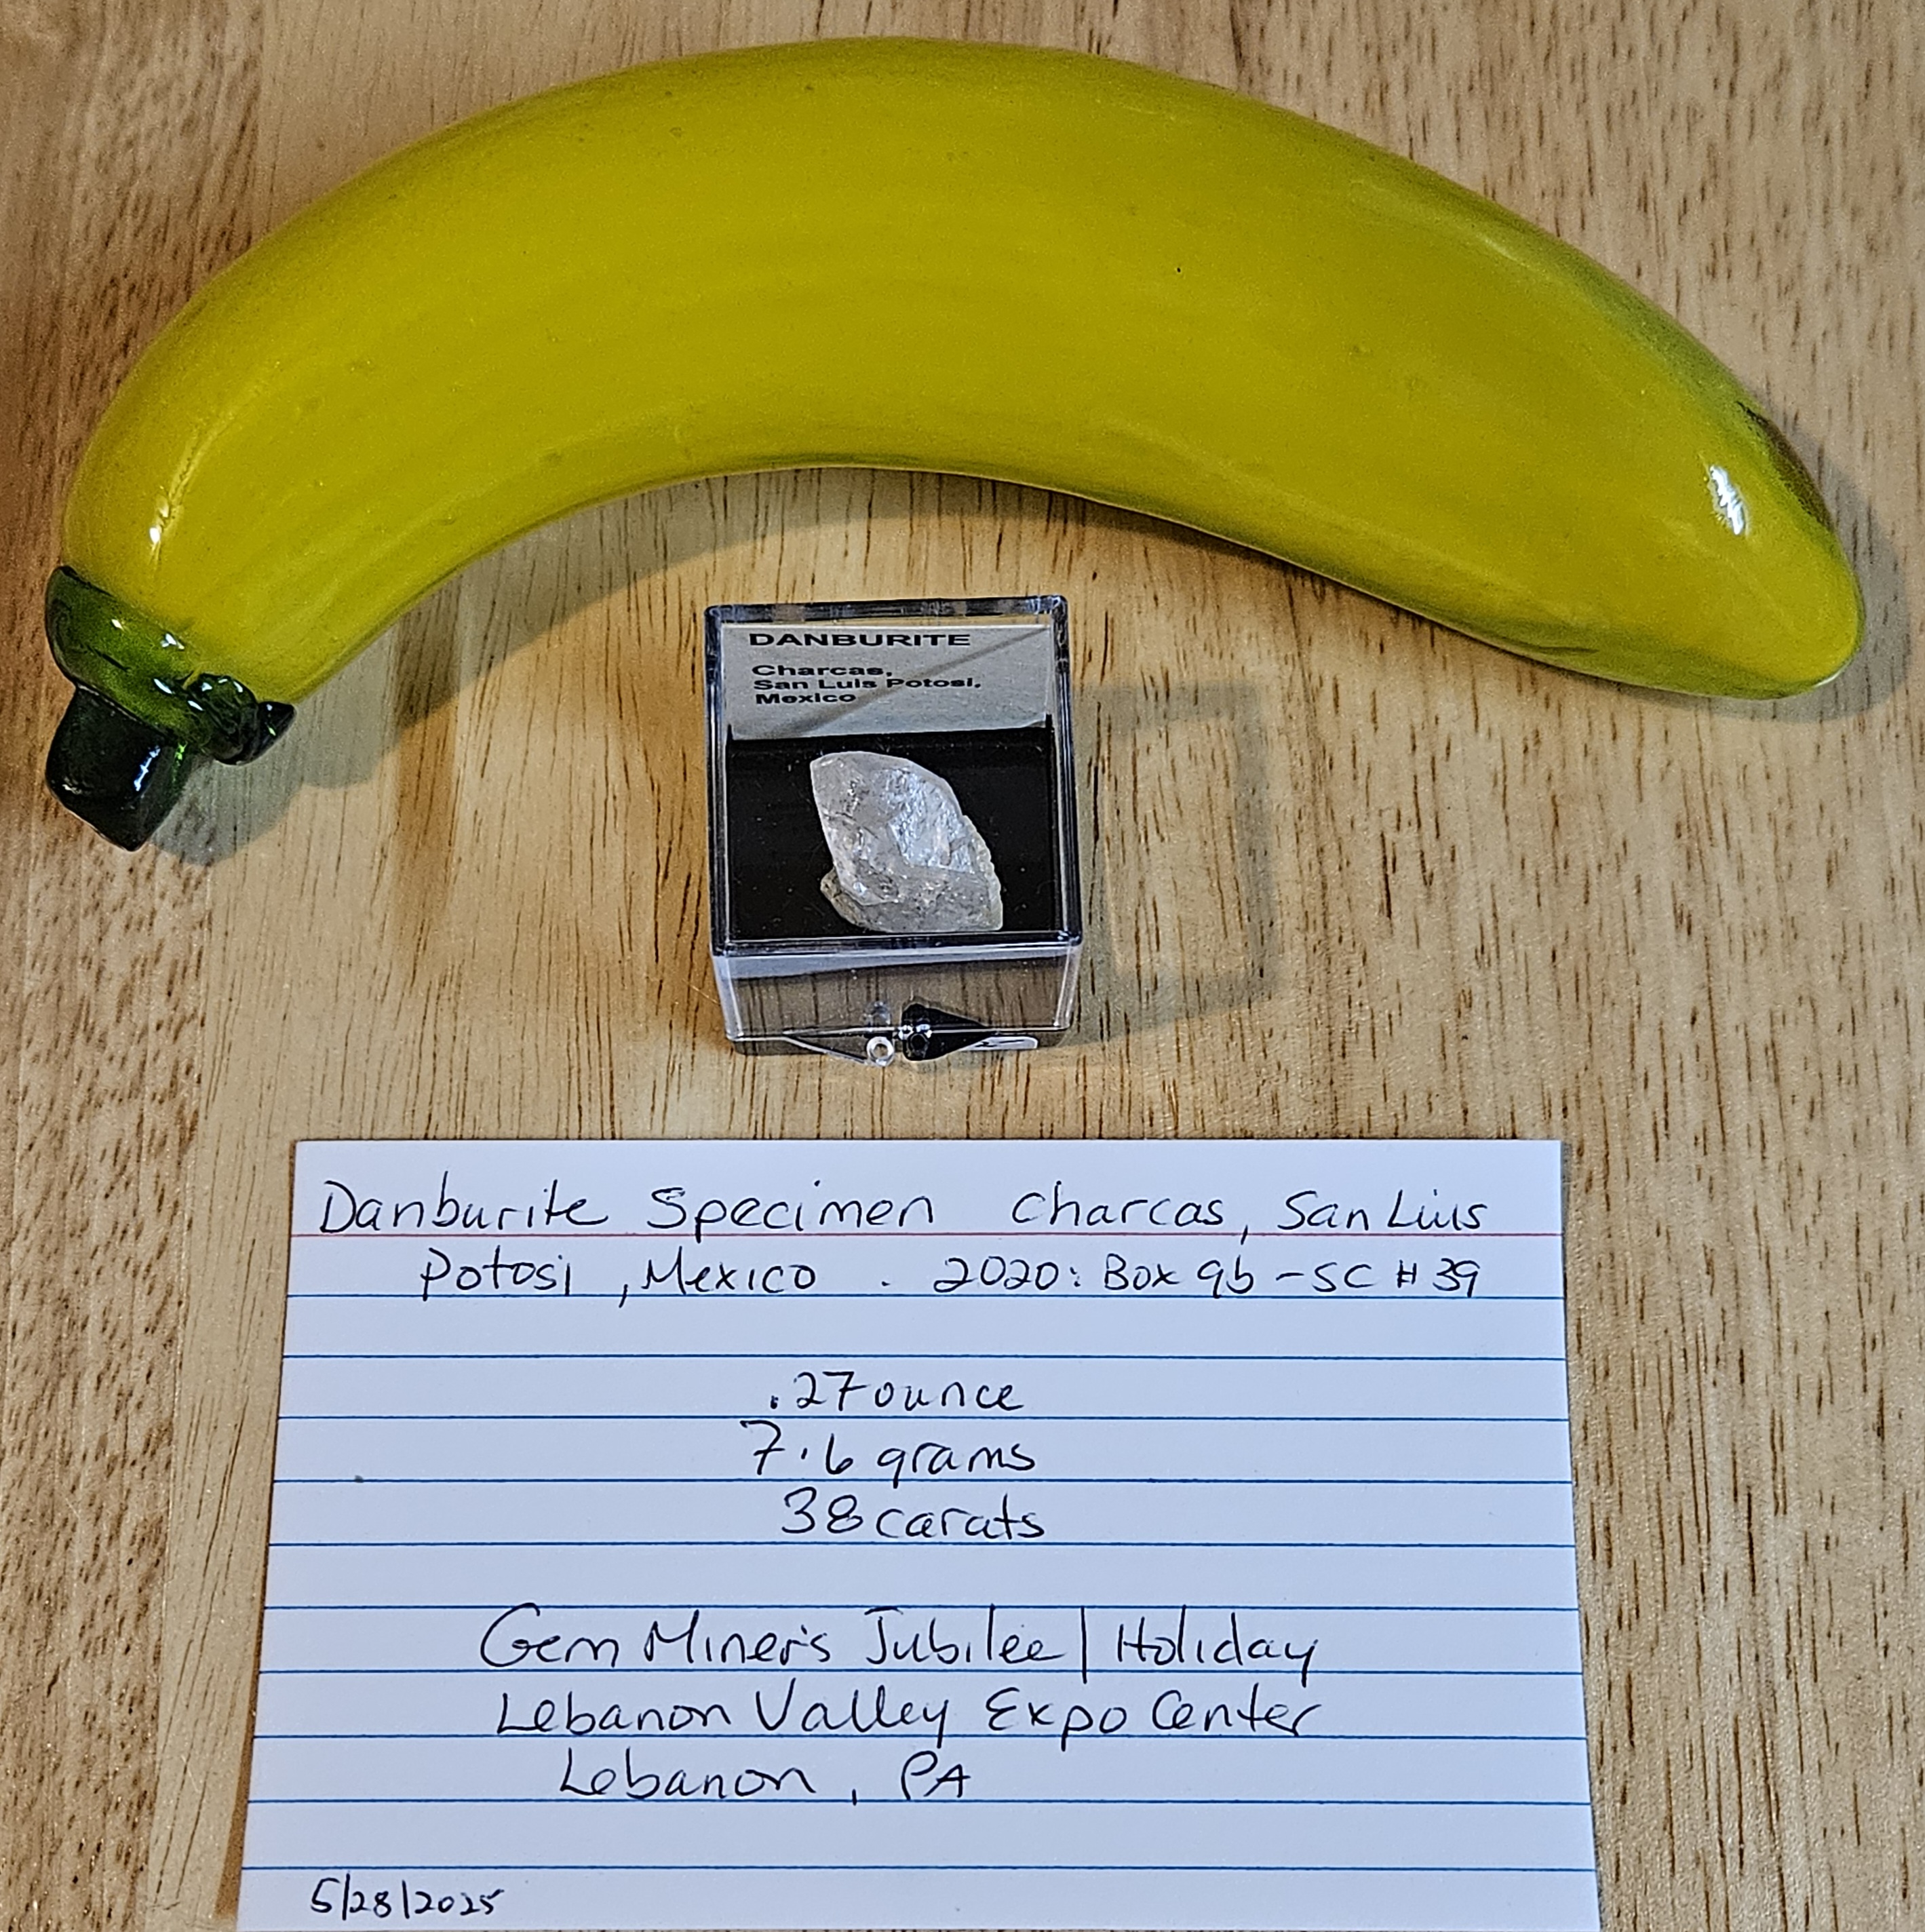 DANBURITE
Charcas,
San Luis Potosi,
Mexico
Danburite Specimen Charcas, San Luis
Potosi, Mexico. 2020: Box 9b - SC # 39
.27 ounce
7.6 grams
38 carats
Gem Miner's Jubilee | Holiday
Lebanon Valley Expo Center
Lebanon, PA
5/28/2025